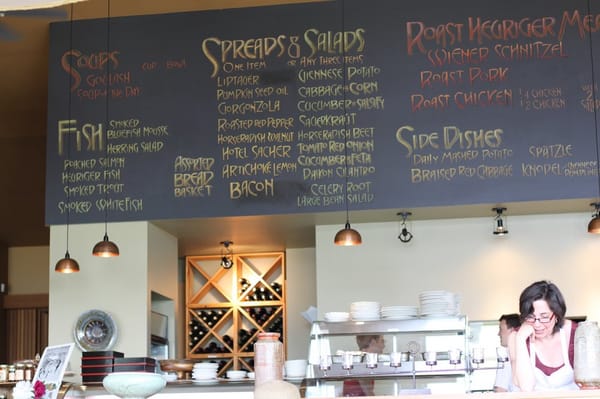 SOUPS
CUP BOWL
GOULASH
SOUP OF THE DAY
FISH
SMOKED
BLUEFISH MOUSSE
HERRING SALAD
POACHED SALMON
HEURIGER FISH
SMOKED TROUT
SMOKED WHITEFISH
ASSORTED
BREAD
BASKET
SPREADS & SALADS
ONE ITEM OR ANY THREE ITEMS
LIPTAUER
PUMPKIN SEED OIL
GORGONZOLA
ROASTED RED PEPPER
HORSERADISH WALNUT
HOTEL SACHER
ARTICHOKE LEMON
BACON
VIENNESE POTATO
CABBAGE OR CORN
CUCUMBER OR SALSIFY
SAUERKRAUT
HORSERADISH BEET
TOMATO RED ONION
CUCUMBER FETA
DAIKON CILANTRO
CELERY ROOT
LARGE BEAN SALAD
ROAST HEURIGER
WIENER SCHNITZEL
ROAST PORK
ROAST CHICKEN 1/4 CHICKEN
1/2 CHICKEN
SIDE DISHES
DAILY MASHED POTATO SPATZLE
BRAISED RED CABBAGE KNODEL